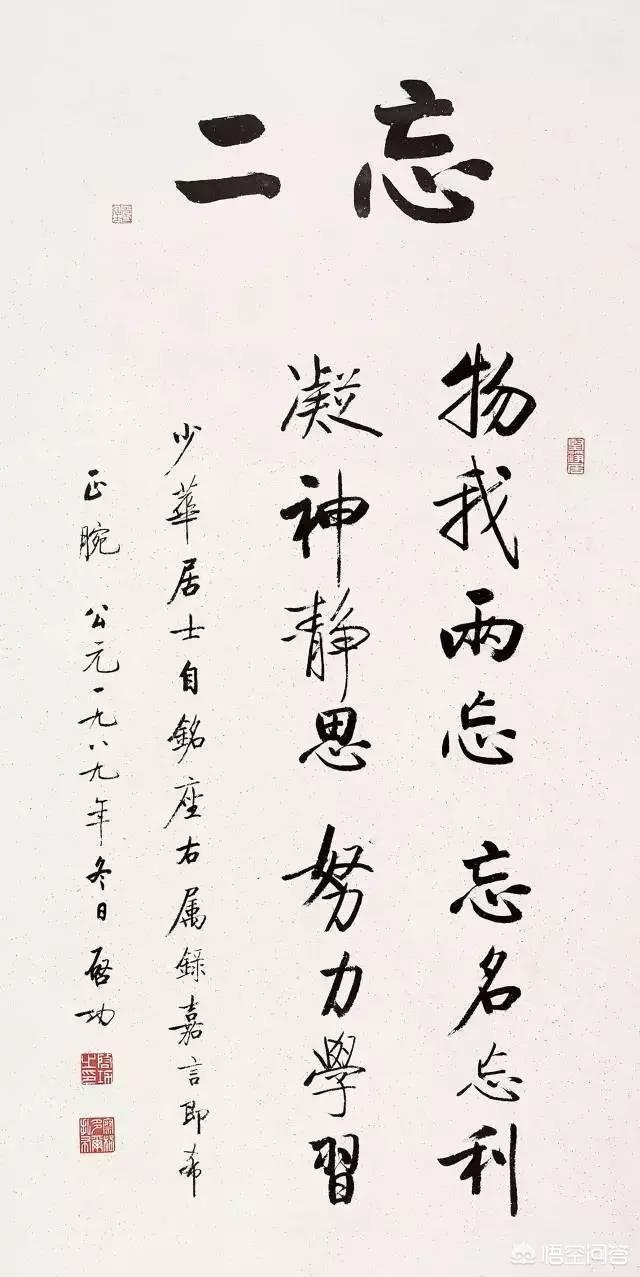 忘二
物我兩忘 忘名忘利
凝神静思 努力學習
少華居士自銘座右属録嘉言即希
正腕 公元一九八九年冬日 啓功
悟空问答